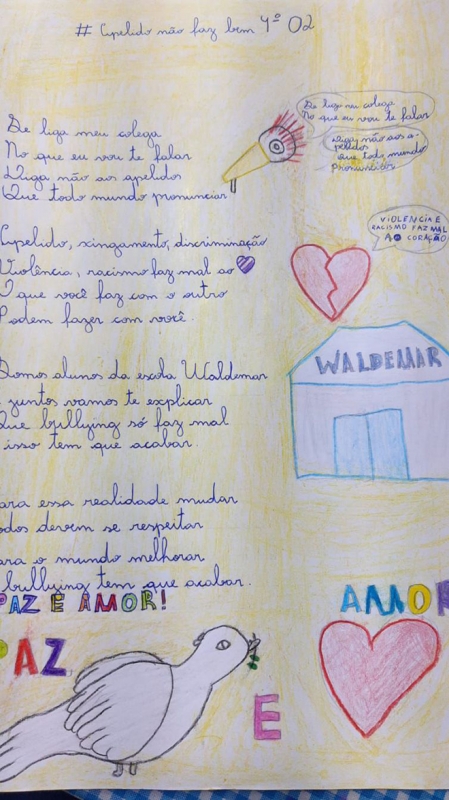 # Apelido não faz bem 4º 02
Se liga meu colega
No que eu vou te falar
Diga não aos apelidos
Que todo mundo pronunciar
Se liga meu colega
No que eu vou te falar
Diga não aos a-
pelidos
que todo mundo
pronunciar
Apelido, xingamento, discriminação
Violência, racismo faz mal ao
O que você faz com o outro
Podem fazer com você.
VIOLENCIA E
RACISMO FAZ MAL
AO CORAÇÃO
Somos alunos da escola Waldemar
juntos vamos te explicar
Que bullying só faz mal
isso tem que acabar.
WALDEMAR
Para essa realidade mudar
Todos devem se respeitar
Para o mundo melhorar
bullying tem que acabar.
PAZ E AMOR!
PAZ
E
AMOR